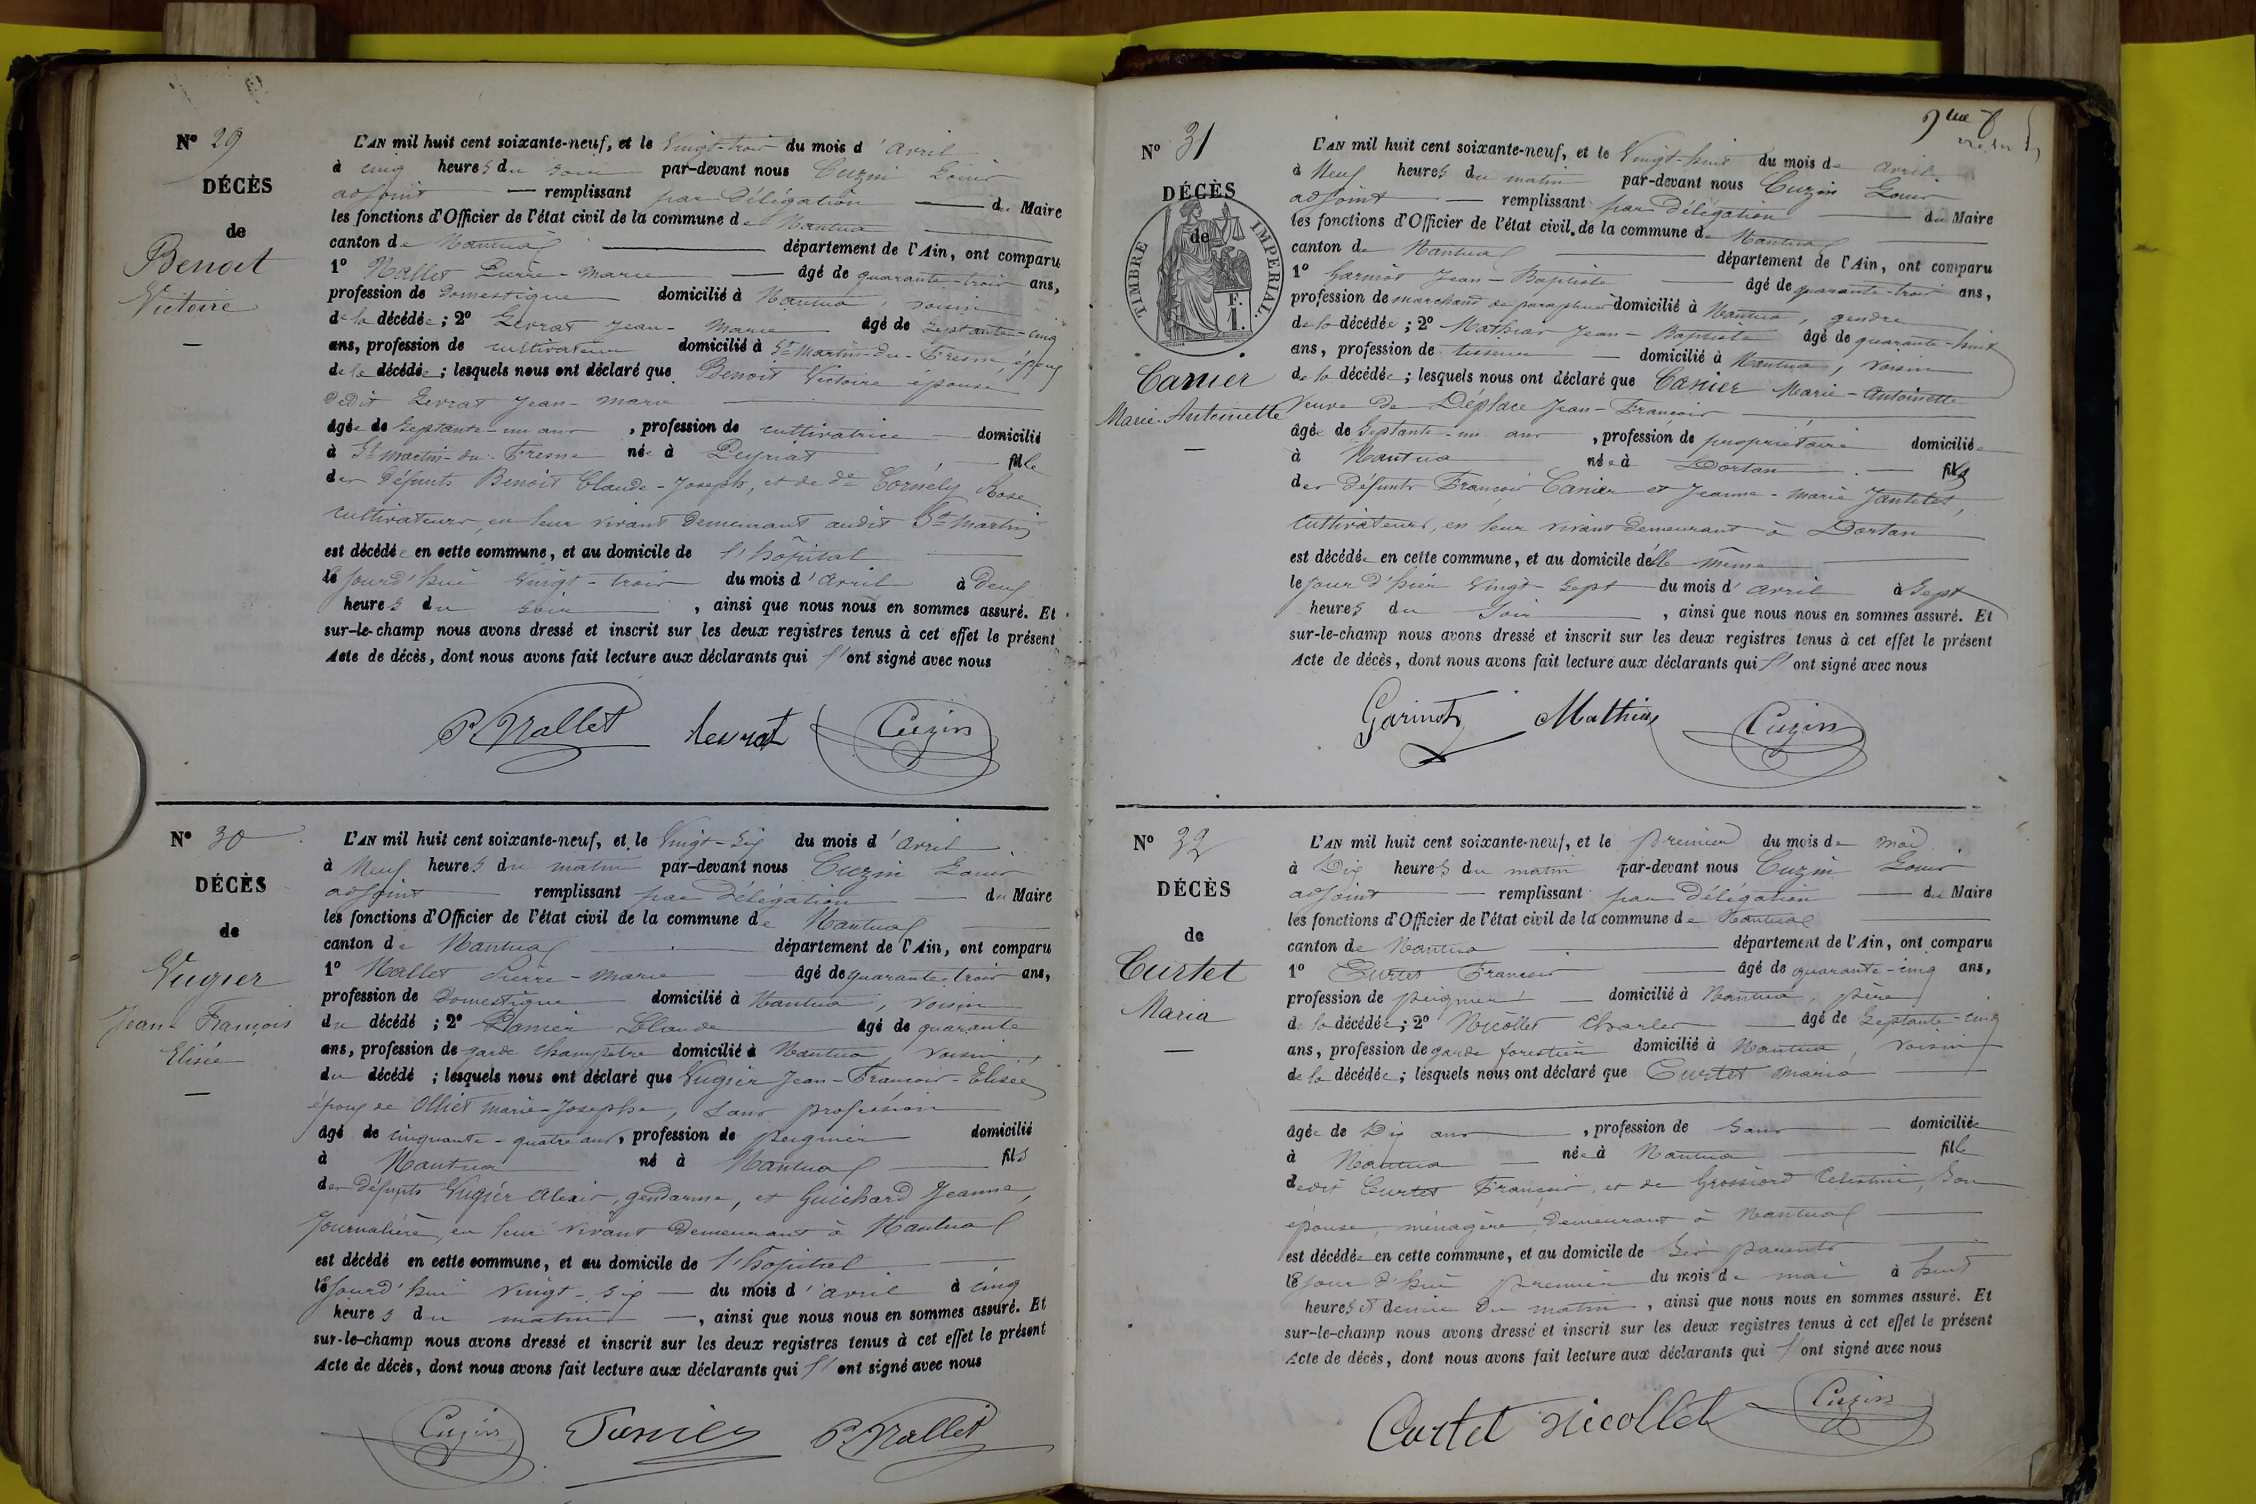 Nº 29
DÉCÈS
de
Benoit
Victoire
L'AN mil huit cent soixante-neuf, et le Vingt-trois du mois d'avril
à cinq heures du soir par-devant nous Cuzin Louis
adjoint remplissant par Délégation du Maire
les fonctions d'Officier de l'état civil de la commune de Nantua
canton de Nantua département de l'Ain, ont comparu
1º Nallet Pierre-Marie âgé de quarante-trois ans,
profession de domestique domicilié à Nantua, voisin
de la décédée; 2º Levrat Jean-Marie âgé de Septante-cinq
ans, profession de cultivateur domicilié à St Martin-du-Fresne, époux
de la décédée; lesquels nous ont déclaré que Benoit Victoire épouse
dudit Levrat Jean-Marie
âgée de Septante-un ans, profession de cultivatrice domicilié
à St Martin-du-Fresne née à Peyriat fille
des défunts Benoit Claude-Joseph, et de de Cornély Rose
cultivateurs, en leur vivant demeurant audit St Martin
est décédée en cette commune, et au domicile de l'hôpital
le Jourd'hui Vingt-trois du mois d'avril à Deux
heures du soir, ainsi que nous nous en sommes assuré. Et
sur-le-champ nous avons dressé et inscrit sur les deux registres tenus à cet effet le présent
Acte de décès, dont nous avons fait lecture aux déclarants qui l'ont signé avec nous
P. Nallet Levrat Cuzin
Nº 30
DÉCÈS
de
Vugier
Jean-François
Elisée
L'AN mil huit cent soixante-neuf, et le Vingt-Six du mois d'avril
à Neuf heures du matin par-devant nous Cuzin Louis
adjoint remplissant par Délégation du Maire
les fonctions d'Officier de l'état civil de la commune de Nantua
canton de Nantua département de l'Ain, ont comparu
1º Nallet Pierre-Marie âgé de quarante-trois ans,
profession de Domestique domicilié à Nantua, voisin
du décédé; 2º Claude âgé de quarante
ans, profession de garde champêtre domicilié à Nantua, voisin
du décédé; lesquels nous ont déclaré que Vugier Jean-François-Elisée
époux de Olliet Marie-Josephe, sans profession
âgé de cinquante-quatre ans, profession de peignier domicilié
à Nantua né à Nantua fils
des défunts Vugier Alexis, gendarme, et Guichard Jeanne,
Journalière, en leur vivant demeurant à Nantua
est décédé en cette commune, et au domicile de l'hôpital
le Jourd'hui vingt-six du mois d'avril à cinq
heures du matin, ainsi que nous nous en sommes assuré. Et
sur-le-champ nous avons dressé et inscrit sur les deux registres tenus à cet effet le présent
Acte de décès, dont nous avons fait lecture aux déclarants qui l'ont signé avec nous
Cuzin P. Nallet
Nº 31
DÉCÈS
de
TIMBRE IMPERIAL.
1 F.
Canier
Marie-Antoinette
L'AN mil huit cent soixante-neuf, et le Vingt-huit du mois de avril
à Neuf heures du matin par-devant nous Cuzin Louis
adjoint remplissant par Délégation du Maire
les fonctions d'Officier de l'état civil de la commune de Nantua
canton de Nantua département de l'Ain, ont comparu
1º Garinot Jean-Baptiste âgé de quarante-trois ans,
profession de marchand de parapluies domicilié à Nantua, gendre
de la décédée; 2º Mathias Jean-Baptiste âgé de quarante-huit
ans, profession de tisseur domicilié à Nantua, voisin
de la décédée; lesquels nous ont déclaré que Canier Marie-Antoinette
Veuve de Déplace Jean-François
âgée de Septante-un ans, profession de propriétaire domiciliée
à Nantua née à Dortan fille
des défunts François Canier et Jeanne-Marie Jantelet,
Cultivateurs, en leur vivant demeurant à Dortan
est décédée en cette commune, et au domicile d'elle même
le jour d'hier Vingt-Sept du mois d'avril à Sept
heures du Soir, ainsi que nous nous en sommes assuré. Et
sur-le-champ nous avons dressé et inscrit sur les deux registres tenus à cet effet le présent
Acte de décès, dont nous avons fait lecture aux déclarants qui l'ont signé avec nous
Garinot Mathias Cuzin
Nº 32
DÉCÈS
de
Curtet
Maria
L'AN mil huit cent soixante-neuf, et le premier du mois de mai
à Dix heures du matin par-devant nous Cuzin Louis
adjoint remplissant par délégation du Maire
les fonctions d'Officier de l'état civil de la commune de Nantua
canton de Nantua département de l'Ain, ont comparu
1º Curtet François âgé de quarante-cinq ans,
profession de peignier domicilié à Nantua, père
de la décédée; 2º Nicollet Charles âgé de Septante-cinq
ans, profession de garde forestier domicilié à Nantua, voisin
de la décédée; lesquels nous ont déclaré que Curtet Maria
âgée de Dix ans, profession de Sans domiciliée
à Nantua née à Nantua fille
dudit Curtet François, et de Grossiord Célestine, Son
épouse, ménagère, demeurant à Nantua
est décédée en cette commune, et au domicile de Ses parents
le jour d'hui premier du mois de mai à huit
heures et demie du matin, ainsi que nous nous en sommes assuré. Et
sur-le-champ nous avons dressé et inscrit sur les deux registres tenus à cet effet le présent
Acte de décès, dont nous avons fait lecture aux déclarants qui l'ont signé avec nous
Curtet Nicollet Cuzin